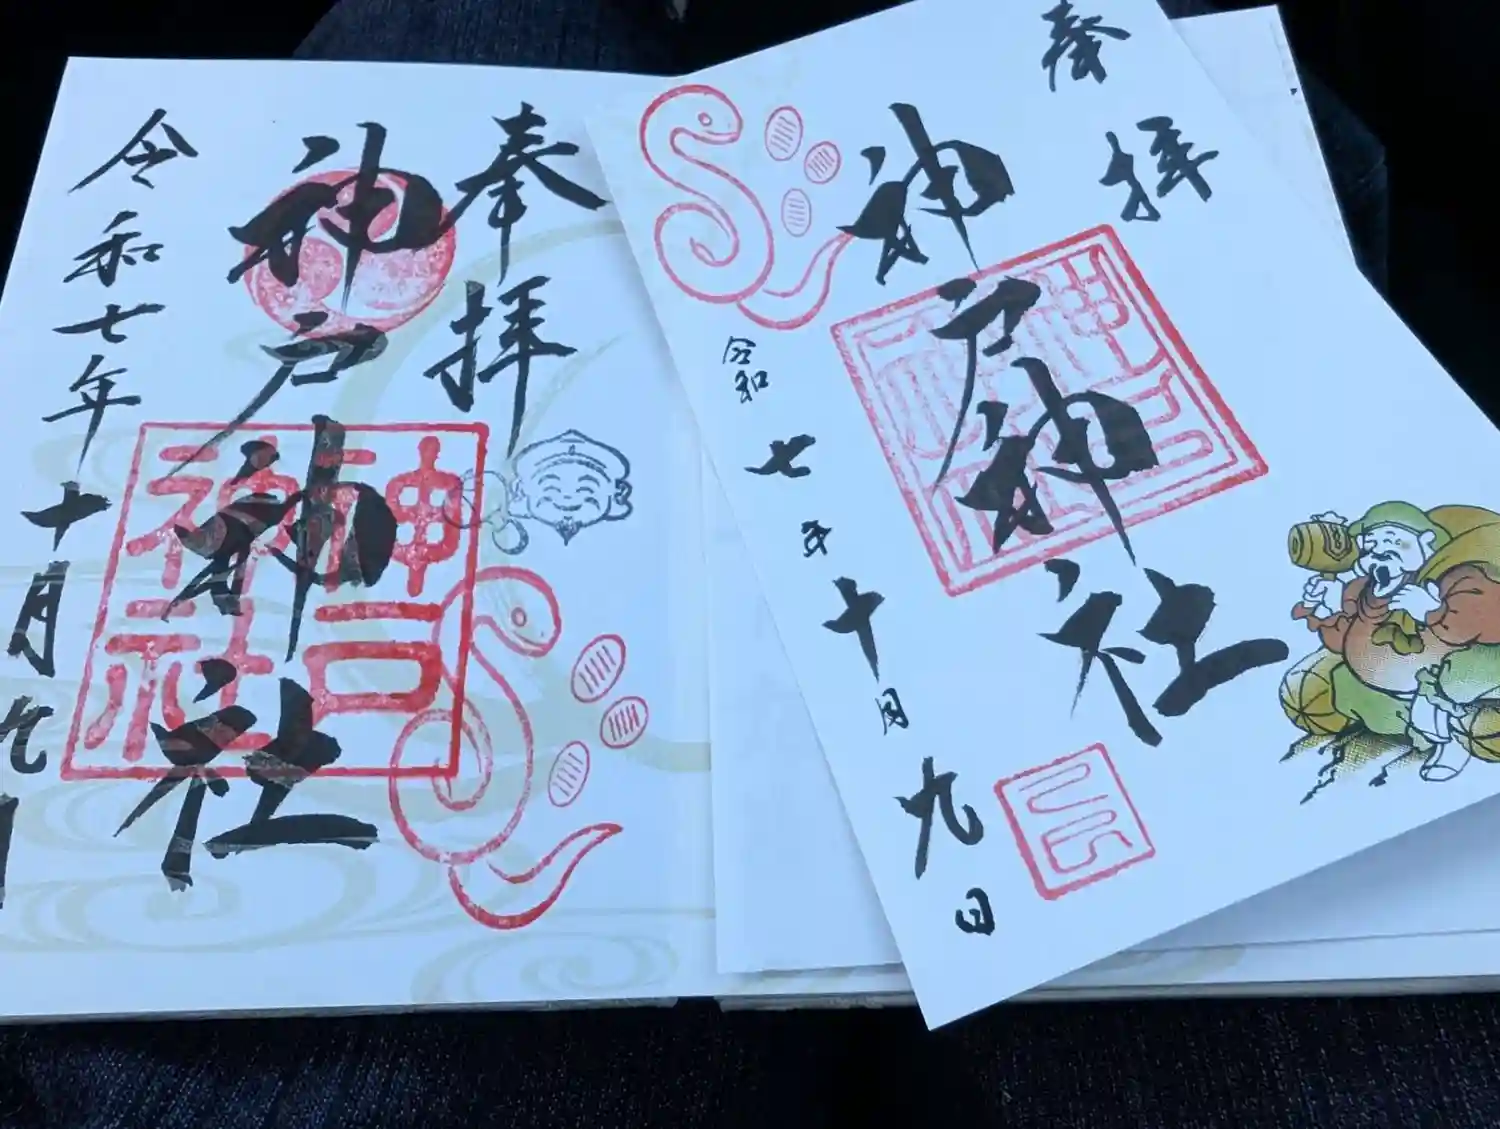 奉拝
神戸神社
神戸
神社
令和七年十月九日
奉拝
神戸神社
令和七年十月九日